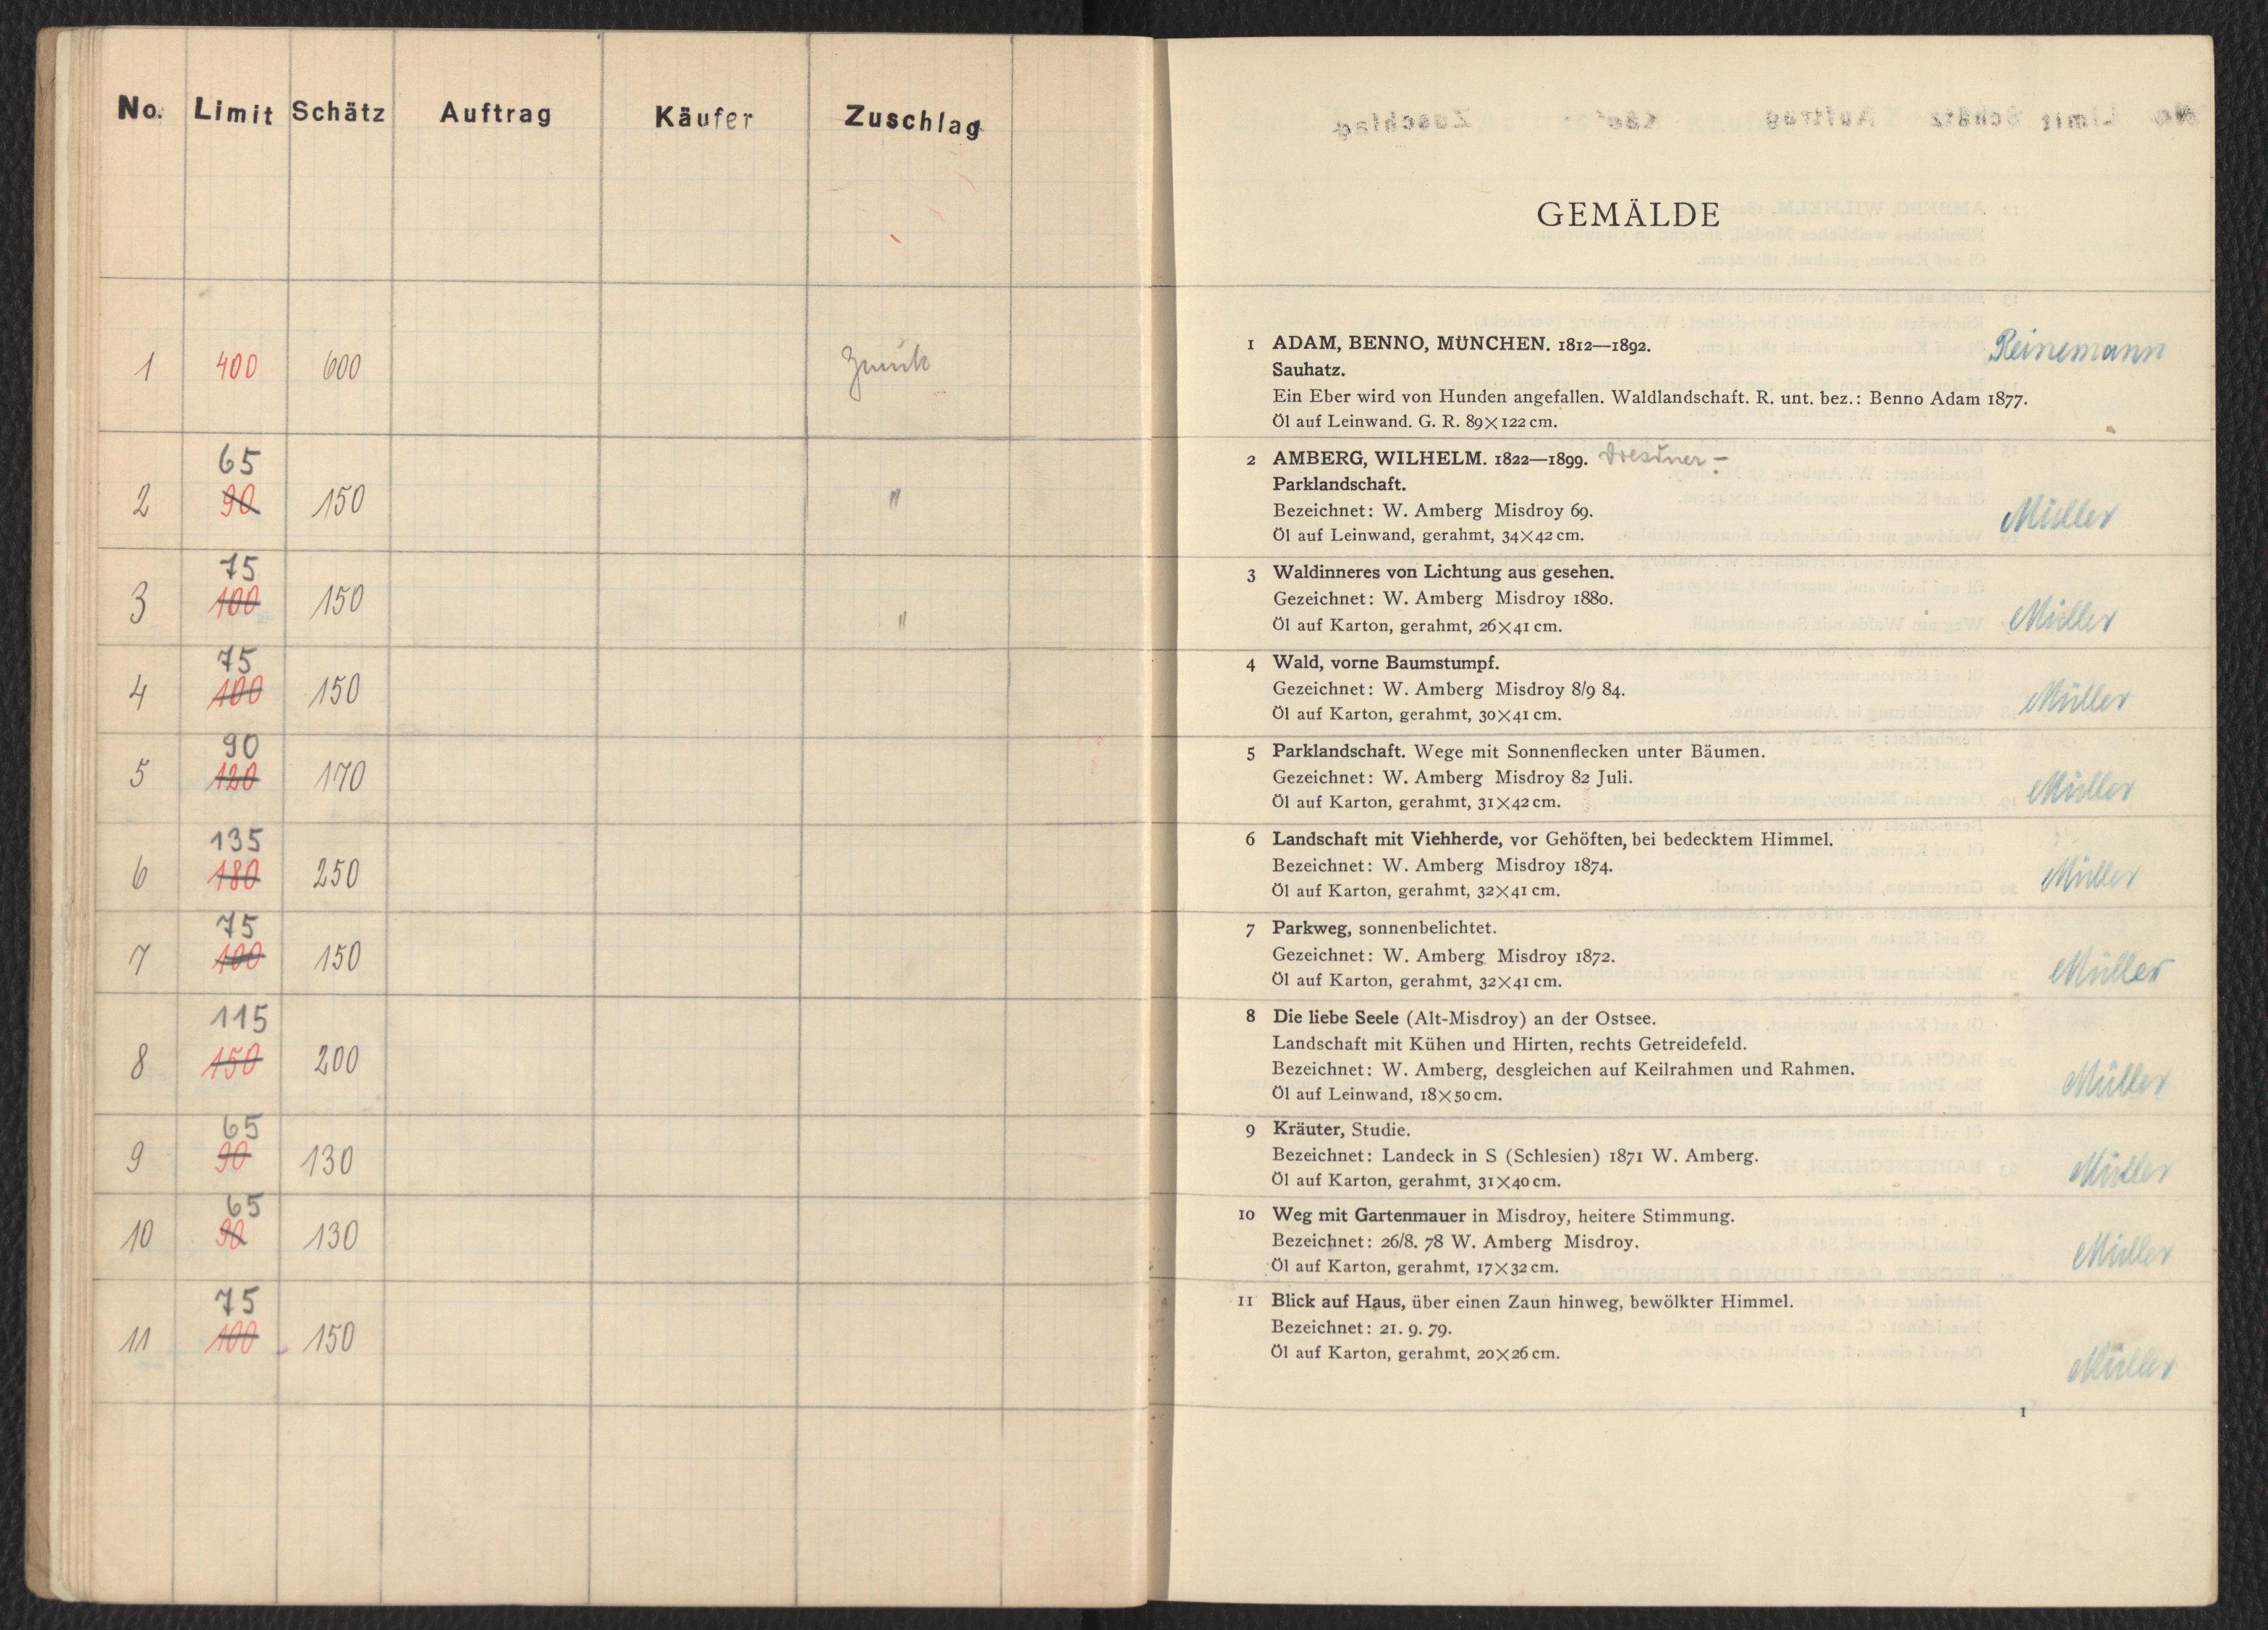 No. Limit Schätz Auftrag Käufer Zuschlag
1 400 600 Zurück
65
2 90 150 "
75
3 100 150 "
75
4 100 150
90
5 120 170
135
6 180 250
75
7 100 150
115
8 150 200
65
9 90 130
65
10 90 130
75
11 100 150
GEMÄLDE
1 ADAM, BENNO, MÜNCHEN. 1812—1892. Reinemann
Sauhatz.
Ein Eber wird von Hunden angefallen. Waldlandschaft. R. unt. bez.: Benno Adam 1877.
Öl auf Leinwand. G. R. 89×122 cm.
2 AMBERG, WILHELM. 1822—1899. Dresdner-
Parklandschaft.
Bezeichnet: W. Amberg Misdroy 69. Müller
Öl auf Leinwand, gerahmt, 34×42 cm.
3 Waldinneres von Lichtung aus gesehen.
Gezeichnet: W. Amberg Misdroy 1880.
Öl auf Karton, gerahmt, 26×41 cm. Müller
4 Wald, vorne Baumstumpf.
Gezeichnet: W. Amberg Misdroy 8/9 84. Müller
Öl auf Karton, gerahmt, 30×41 cm.
5 Parklandschaft. Wege mit Sonnenflecken unter Bäumen.
Gezeichnet: W. Amberg Misdroy 82 Juli. Müller
Öl auf Karton, gerahmt, 31×42 cm.
6 Landschaft mit Viehherde, vor Gehöften, bei bedecktem Himmel.
Bezeichnet: W. Amberg Misdroy 1874. Müller
Öl auf Karton, gerahmt, 32×41 cm.
7 Parkweg, sonnenbelichtet.
Gezeichnet: W. Amberg Misdroy 1872. Müller
Öl auf Karton, gerahmt, 32×41 cm.
8 Die liebe Seele (Alt-Misdroy) an der Ostsee.
Landschaft mit Kühen und Hirten, rechts Getreidefeld.
Bezeichnet: W. Amberg, desgleichen auf Keilrahmen und Rahmen. Müller
Öl auf Leinwand, 18×50 cm.
9 Kräuter, Studie.
Bezeichnet: Landeck in S (Schlesien) 1871 W. Amberg. Müller
Öl auf Karton, gerahmt, 31×40 cm.
10 Weg mit Gartenmauer in Misdroy, heitere Stimmung.
Bezeichnet: 26/8. 78 W. Amberg Misdroy. Müller
Öl auf Karton, gerahmt, 17×32 cm.
11 Blick auf Haus, über einen Zaun hinweg, bewölkter Himmel.
Bezeichnet: 21. 9. 79.
Öl auf Karton, gerahmt, 20×26 cm. Müller
1